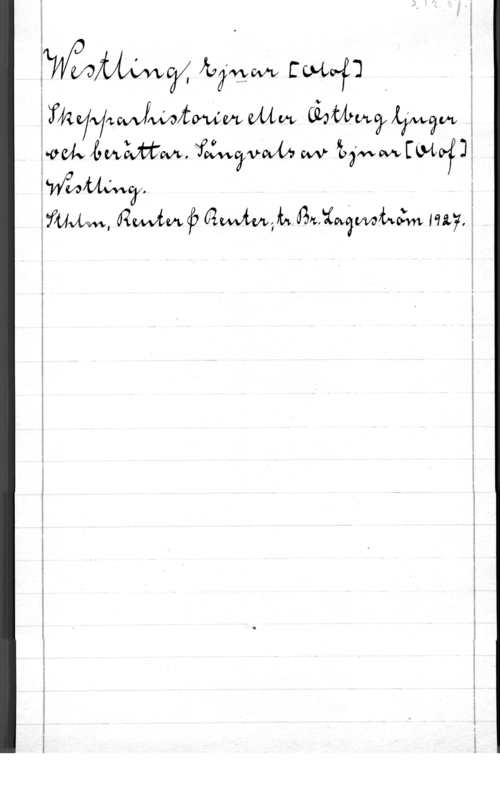 Westling, Ejnar [Olof]
Skepparhistorier eller Östberg ljuger
och berättar. Sångvals av Ejnar [Olof]
Westling.
Sthlm, Reuter & Reuter, tr. Br. Lagerström 1927.